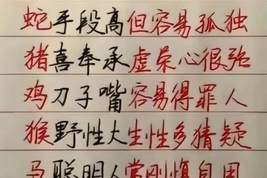 蛇手段高但容易孤独
猪喜奉承虚荣心很强
鸡刀子嘴容易得罪人
猴野性大生性多猜疑
马聪明人常刚愎自用